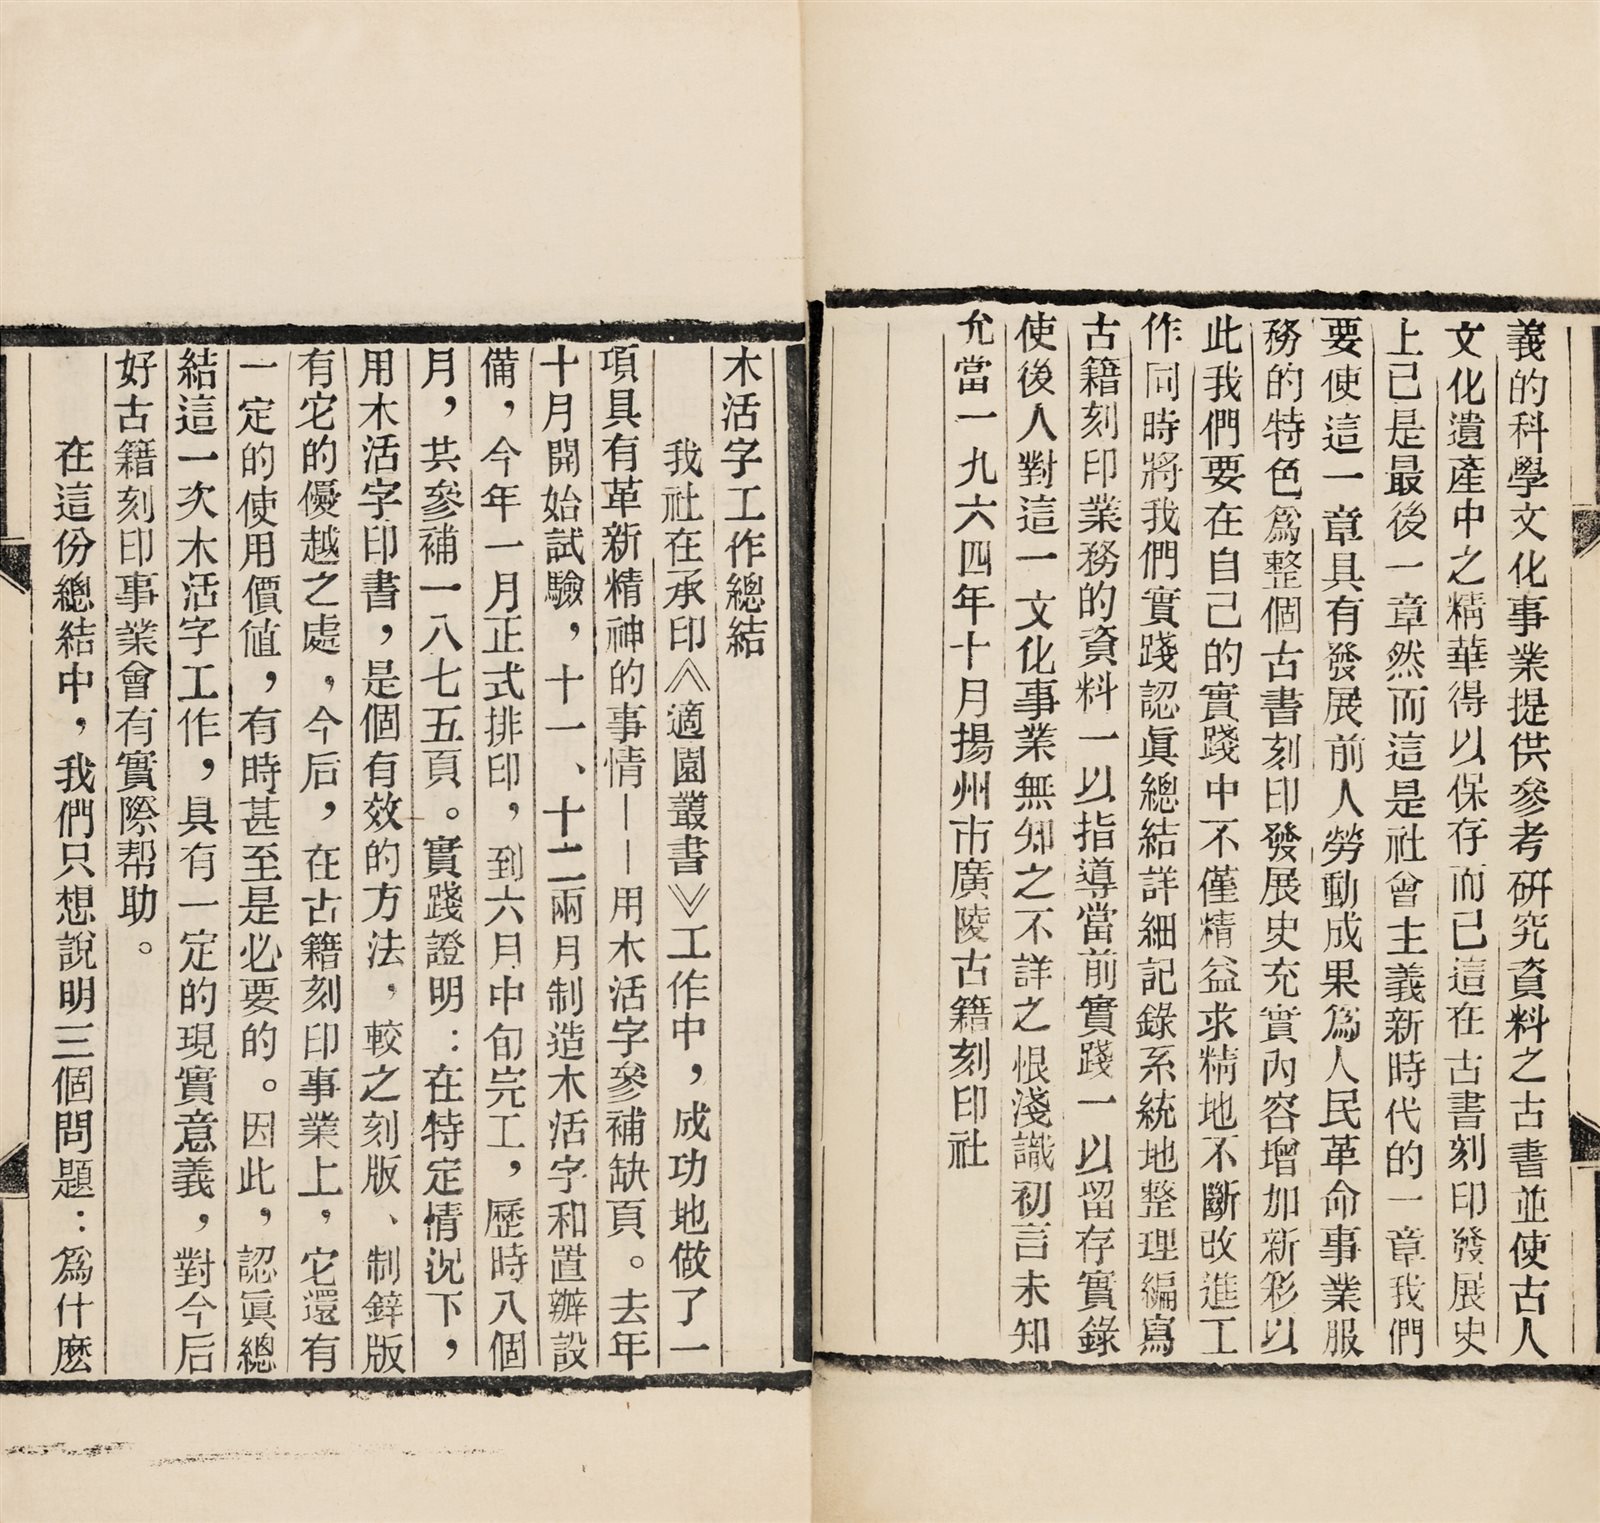 義的科學文化事業提供參考硏究資料之古書並使古人
文化遺產中之精華得以保存而已這在古書刻印發展史
上已是最後一章然而這是社會主義新時代的一章我們
要使這一章具有發展前人勞動成果爲人民革命事業服
務的特色爲整個古書刻印發展史充實內容增加新彩以
此我們要在自己的實踐中不僅精益求精地不斷改進工
作同時將我們實踐認眞總結詳細記錄系統地整理編寫
古籍刻印業務的資料一以指導當前實踐一以留存實錄
使後人對這一文化事業無知之不詳之恨淺識初言未知
允當一九六四年十月揚州市廣陵古籍刻印社
木活字工作總結
我社在承印《適園叢書》工作中，成功地做了一
項具有革新精神的事情——用木活字參補缺頁。去年
十月開始試驗，十一、十二兩月制造木活字和置辦設
備，今年一月正式排印，到六月中旬完工，歷時八個
月，共參補一八七五頁。實踐證明：在特定情況下，
用木活字印書，是個有效的方法，較之刻版、制鋅版
有它的優越之處，今后，在古籍刻印事業上，它還有
一定的使用價値，有時甚至是必要的。因此，認眞總
結這一次木活字工作，具有一定的現實意義，對今后
好古籍刻印事業會有實際帮助。
在這份總結中，我們只想說明三個問題：爲什麽